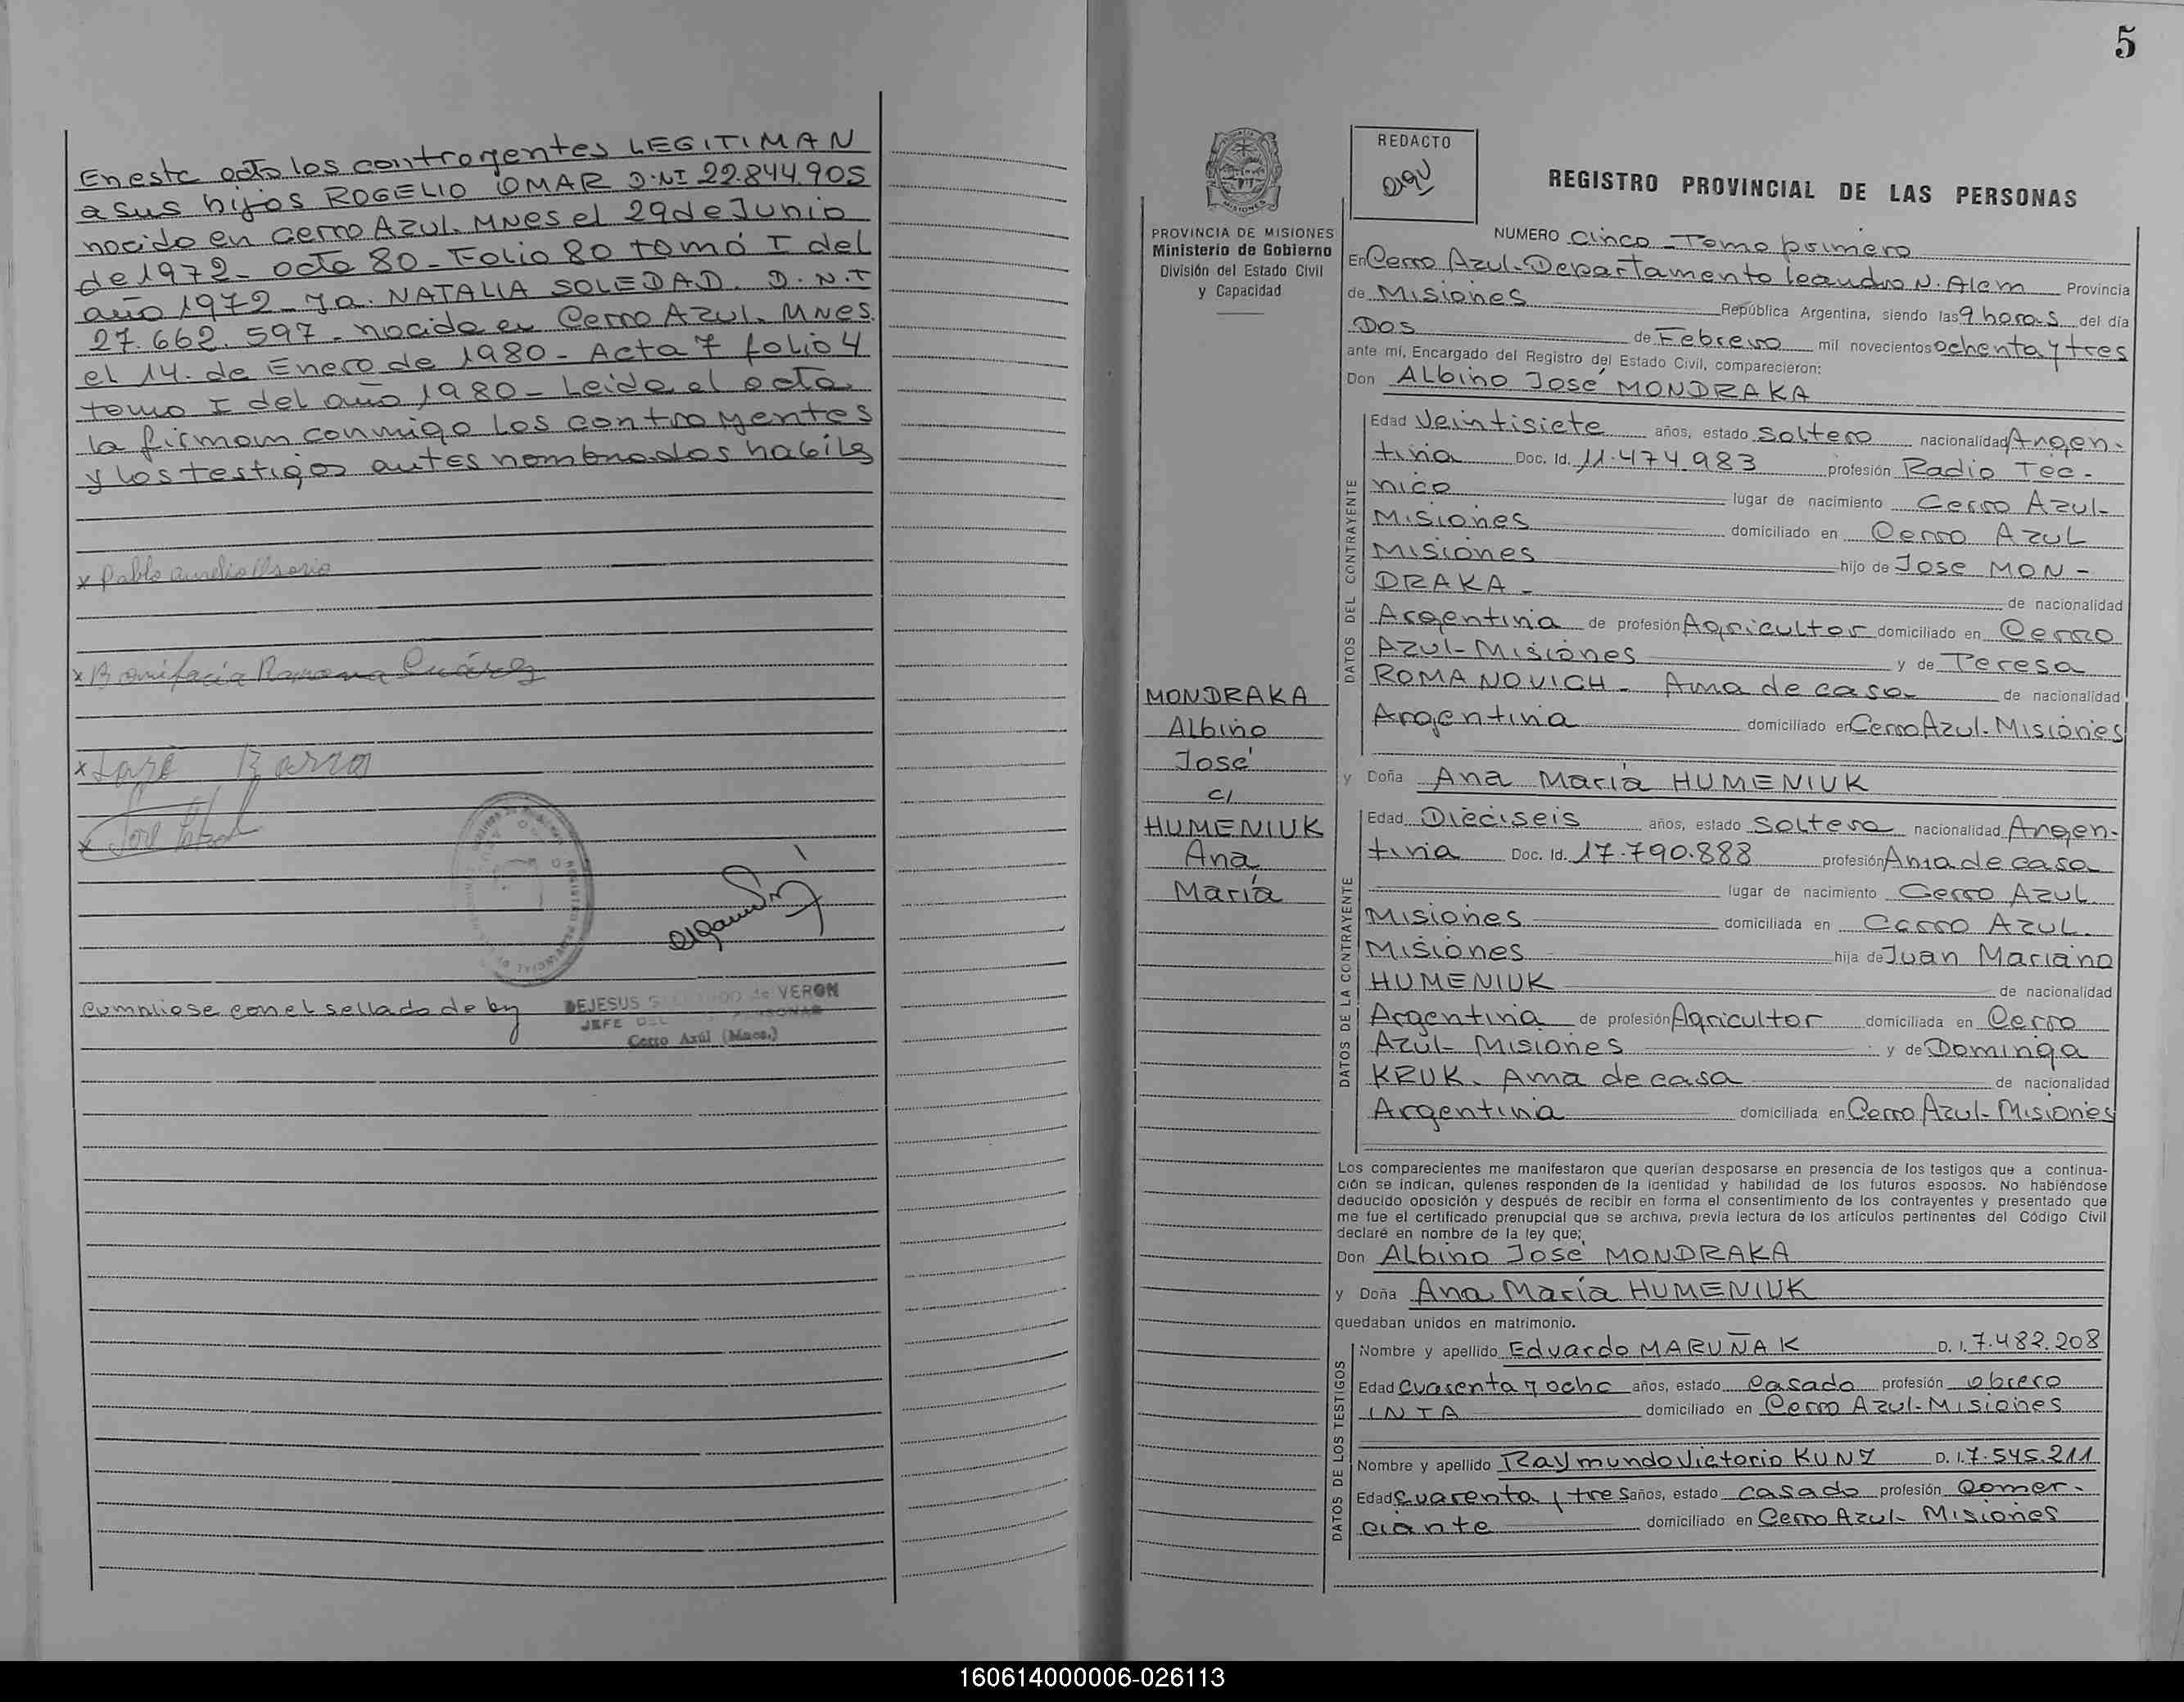 En este acto los contrayentes LEGITIMAN
a sus hijos ROGELIO OMAR D.NI 22.844.905
nacido en Cerro Azul. Mnes el 29 de Junio
de 1972 - acta 80 - Folio 80 tomó I del
año 1972 - y a. NATALIA SOLEDAD. D.N.I
27.662.597 - nacida en Cerro Azul. Mnes.
el 14. de Enero de 1980 - Acta 7 folio 4
tomo I del año 1980 - Leida el acta
la firmam conmigo los contrayentes
y los testigos antes nombrados habiles
x Pablo Aurelio Osorio
x Bonifacia Ramona Suárez
x José
x José
Cumpliose con el sellado de ley
DEJESUS de VERON
JEFE DEL PERSONAS
Cerro Azúl (Mnes.)
5
PROVINCIA DE MISIONES
Ministerio de Gobierno
División del Estado Civil
y Capacidad
MONDRAKA
Albino
José
c/
HUMENIUK
Ana
María
REDACTO
REGISTRO PROVINCIAL DE LAS PERSONAS
NUMERO Cinco - Tomo primero
En Cerro Azul - Departamento Leandro N. Alem Provincia
de Misiones República Argentina, siendo las 9 horas del día
Dos de Febrero mil novecientos ochenta y tres
ante mí, Encargado del Registro del Estado Civil, comparecieron:
Don Albino José MONDRAKA
DATOS DEL CONTRAYENTE
Edad Veintisiete años, estado Soltero nacionalidad Argen-
tina Doc. Id. 11.474.983 profesión Radio Tec-
nico lugar de nacimiento Cerro Azul-
Misiones domiciliado en Cerro Azul
Misiones hijo de Jose MON-
DRAKA - de nacionalidad
Argentina de profesión Agricultor domiciliado en Cerro
Azul - Misiones y de Teresa
ROMANOVICH - Ama de casa de nacionalidad
Argentina domiciliado en Cerro Azul - Misiones
y Doña Ana María HUMENIUK
DATOS DE LA CONTRAYENTE
Edad Dieciseis años, estado Soltera nacionalidad Argen-
tina Doc. Id. 17.790.888 profesión Ama de casa
lugar de nacimiento Cerro Azul.
Misiones domiciliada en Cerro Azul.
Misiones hija de Juan Mariano
HUMENIUK de nacionalidad
Argentina de profesión Agricultor domiciliada en Cerro
Azul - Misiones y de Dominga
KRUK. Ama de casa de nacionalidad
Argentina domiciliada en Cerro Azul - Misiones
Los comparecientes me manifestaron que querían desposarse en presencia de los testigos que a continua-
ción se indican, quienes responden de la identidad y habilidad de los futuros esposos. No habiéndose
deducido oposición y después de recibir en forma el consentimiento de los contrayentes y presentado que
me fue el certificado prenupcial que se archiva, previa lectura de los artículos pertinentes del Código Civil
declaré en nombre de la ley que;
Don Albino José MONDRAKA
y Doña Ana María HUMENIUK
quedaban unidos en matrimonio.
DATOS DE LOS TESTIGOS
Nombre y apellido Eduardo MARUÑAK D. I. 7.482.208
Edad Cuarenta y ocho años, estado Casado profesión obrero
INTA domiciliado en Cerro Azul - Misiones
Nombre y apellido Raymundo Victorio KUNZ D. I. 7.545.211
Edad Cuarenta y tres años, estado casado profesión Comer-
ciante domiciliado en Cerro Azul - Misiones
160614000006-026113